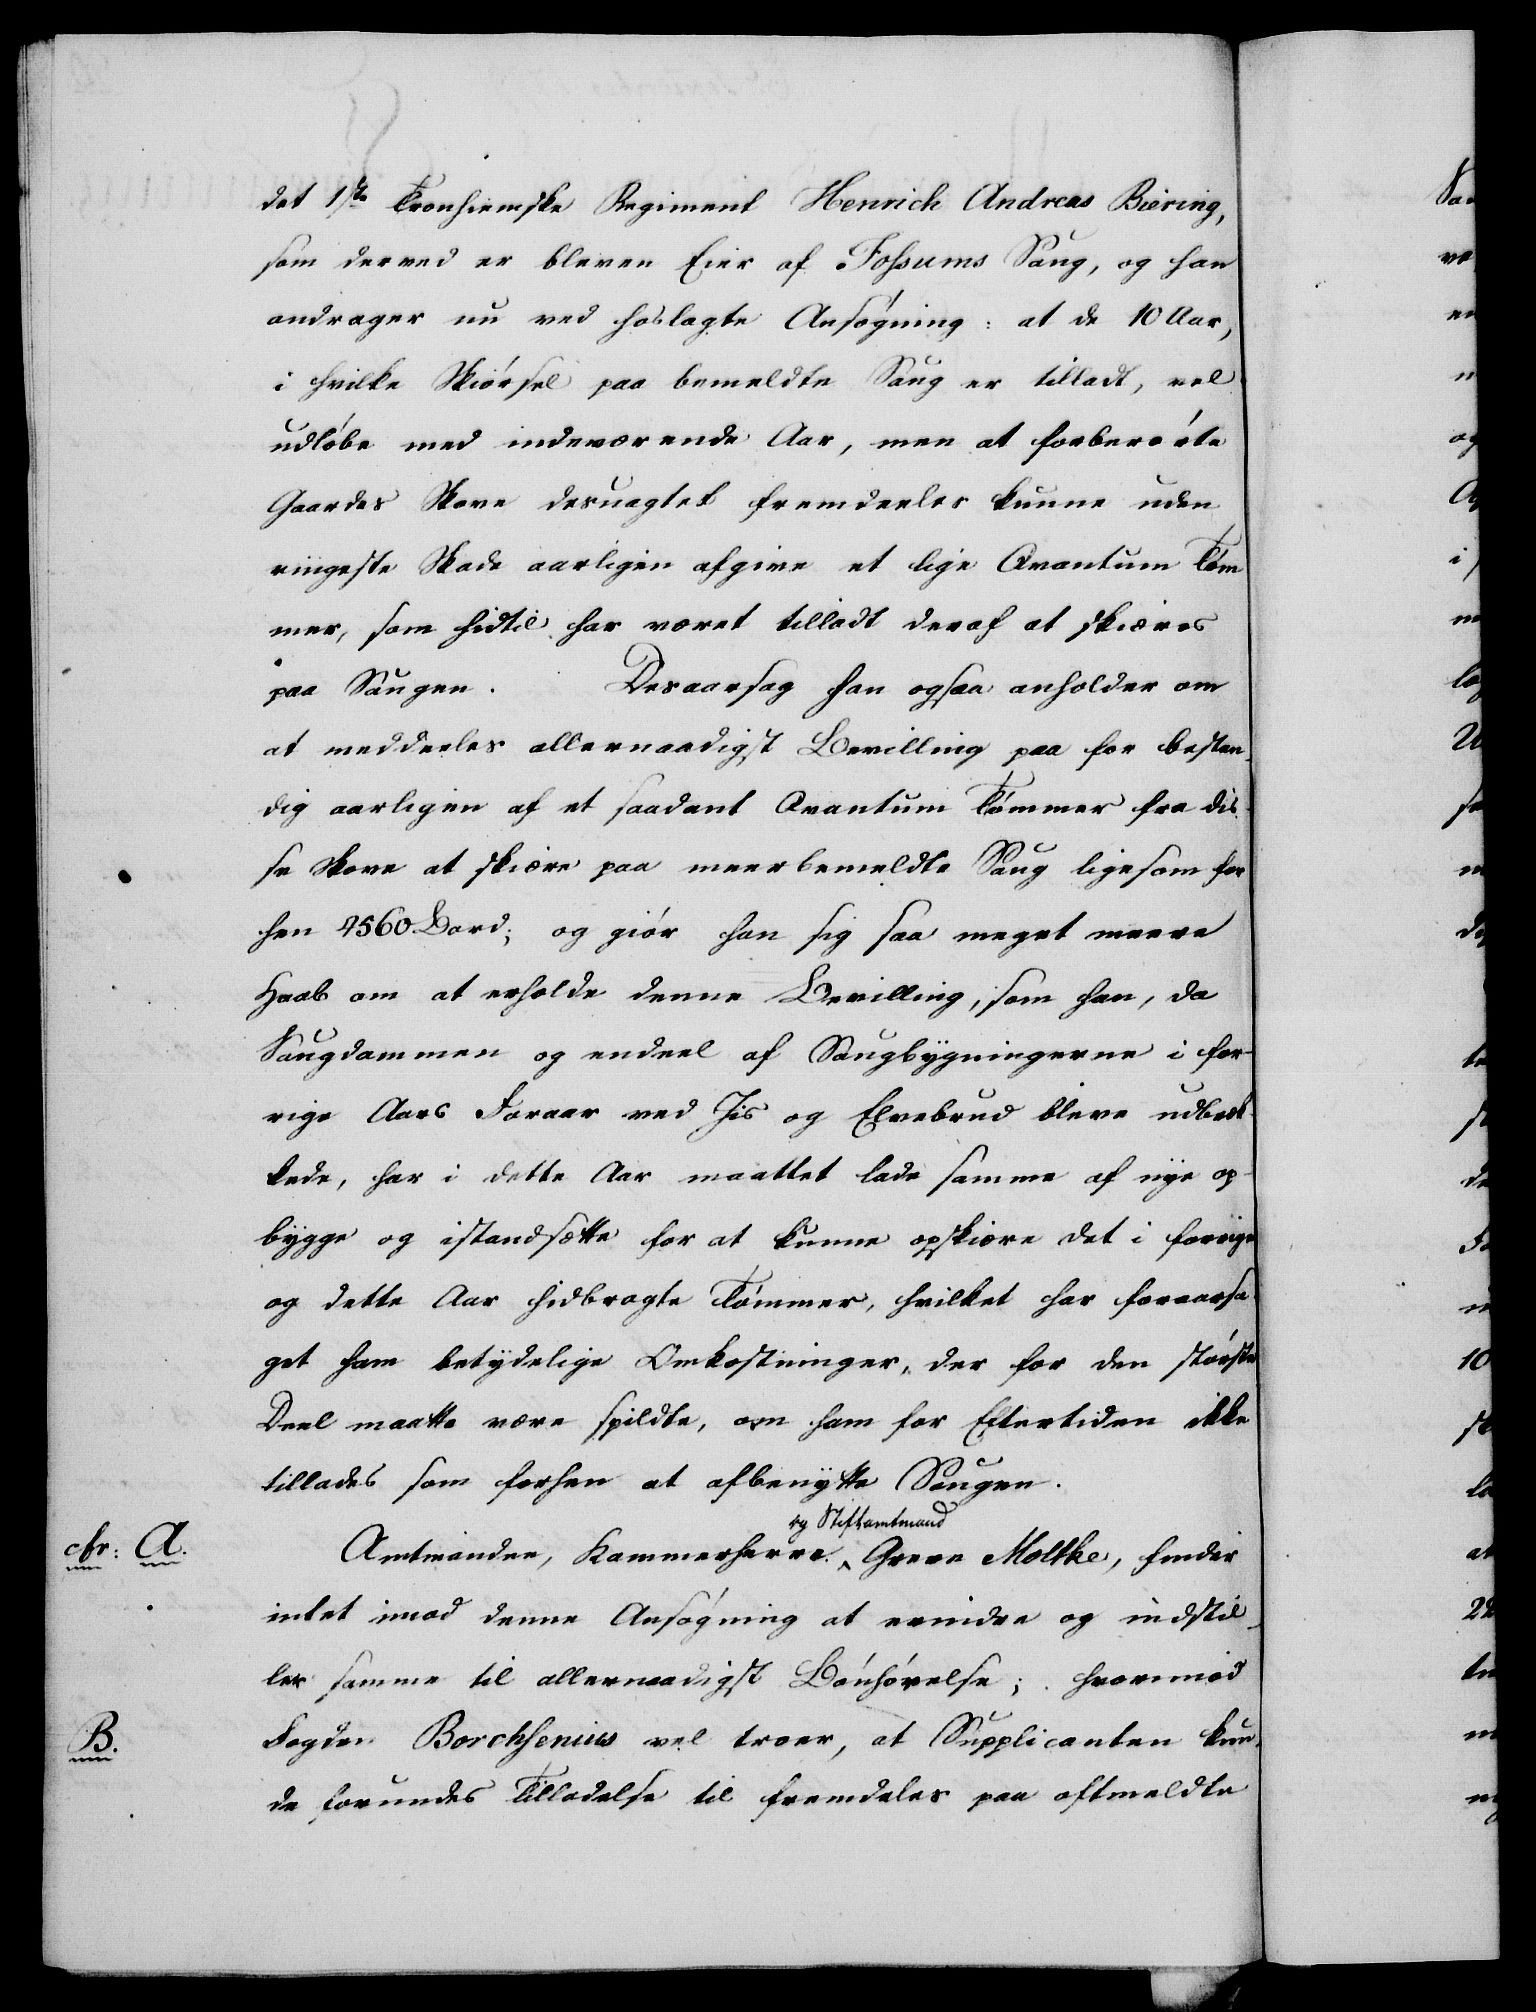 det 1ste Tronhiemske Regiment Henrich Andreas Biering,
som derved er bleven Eier af Fossums Saug, og han
andrager nu ved hoslagte Ansøgning: at de 10 Aar,
i hvilke Skiørsel paa bemeldte Saug er tilladt, vel
udløbe med indeværende Aar, men at forberørte
Gaardes Skove desuagtet fremdeeles kunne uden
ringeste Skade aarligen afgive et lige Qvantum Tøm
mer, som hidtil har været tilladt deraf at skiæres
paa Saugen. Desaarsag han ogsaa anholder om
at meddeeles allernaadigst Bevilling paa for bestan-
dig aarligen af et saadant Qvantum Tømmer fra dis-
se Skove at skiære paa meerbemeldte Saug ligesom for
hen 4560 Bord; og giør han sig saa meget meere
Haab om at erholde denne Bevilling, som han, da
Saugdammen og endeel af Saugbygningerne i for-
rige Aars Foraar ved Iis og Elvebrud bleve udbræk-
kede, har i dette Aar maattet lade samme af nye op-
bygge og istandsætte for at kunne opskiære det i forrige
og dette Aar hidbragte Tømmer, hvilket har foraarsa-
get ham betydelige Omkostninger, der for den største
Deel maatte være spildte, om ham for Eftertiden ikke
tillades som forhen at afbenytte Saugen.
og Stiftamtmand
cfr: A. Amtmanden, Kammerherre Greve Moltke, finder
intet imod denne Ansøgning at erindre og indstil-
ler samme til allernaadigst Bønhørelse; hvorimod
B. Fogden Borchsenius vel troer, at Supplicanten kun-
de forundes Tilladelse til fremdeles paa oftmeldte